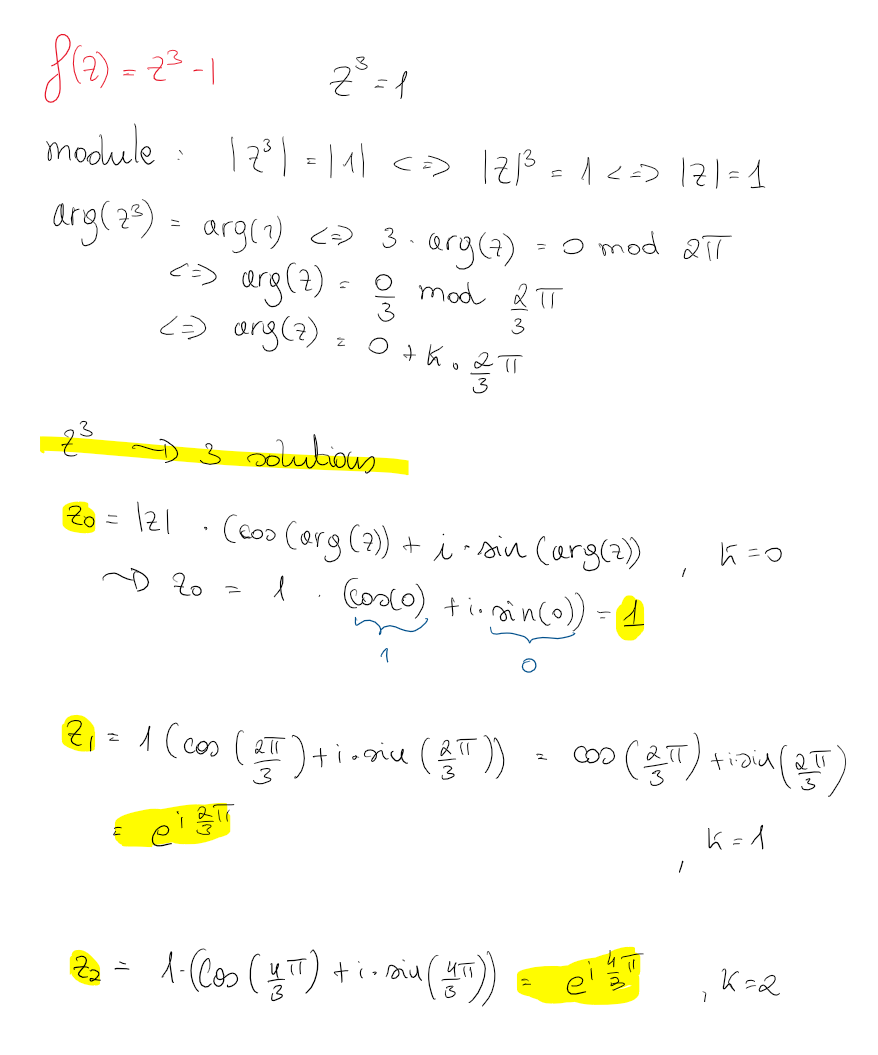 f(z) = z³ - 1 z³ = 1
module : |z³| = |1| <=> |z|³ = 1 <=> |z| = 1
arg(z³) = arg(1) <=> 3 · arg(z) = 0 mod 2π
<=> arg(z) = 0/3 mod 2/3 π
<=> arg(z) = 0 + k · 2/3 π
z³ ~> 3 solutions
z₀ = |z| · (cos(arg(z)) + i · sin(arg(z)) , k = 0
~> z₀ = 1 · (cos(0) + i · sin(0)) = 1
1 0
z₁ = 1 (cos(2π/3) + i · sin(2π/3)) = cos(2π/3) + i sin(2π/3)
= e^(i 2π/3) , k = 1
z₂ = 1 · (cos(4π/3) + i · sin(4π/3)) = e^(i 4/3 π) , k = 2